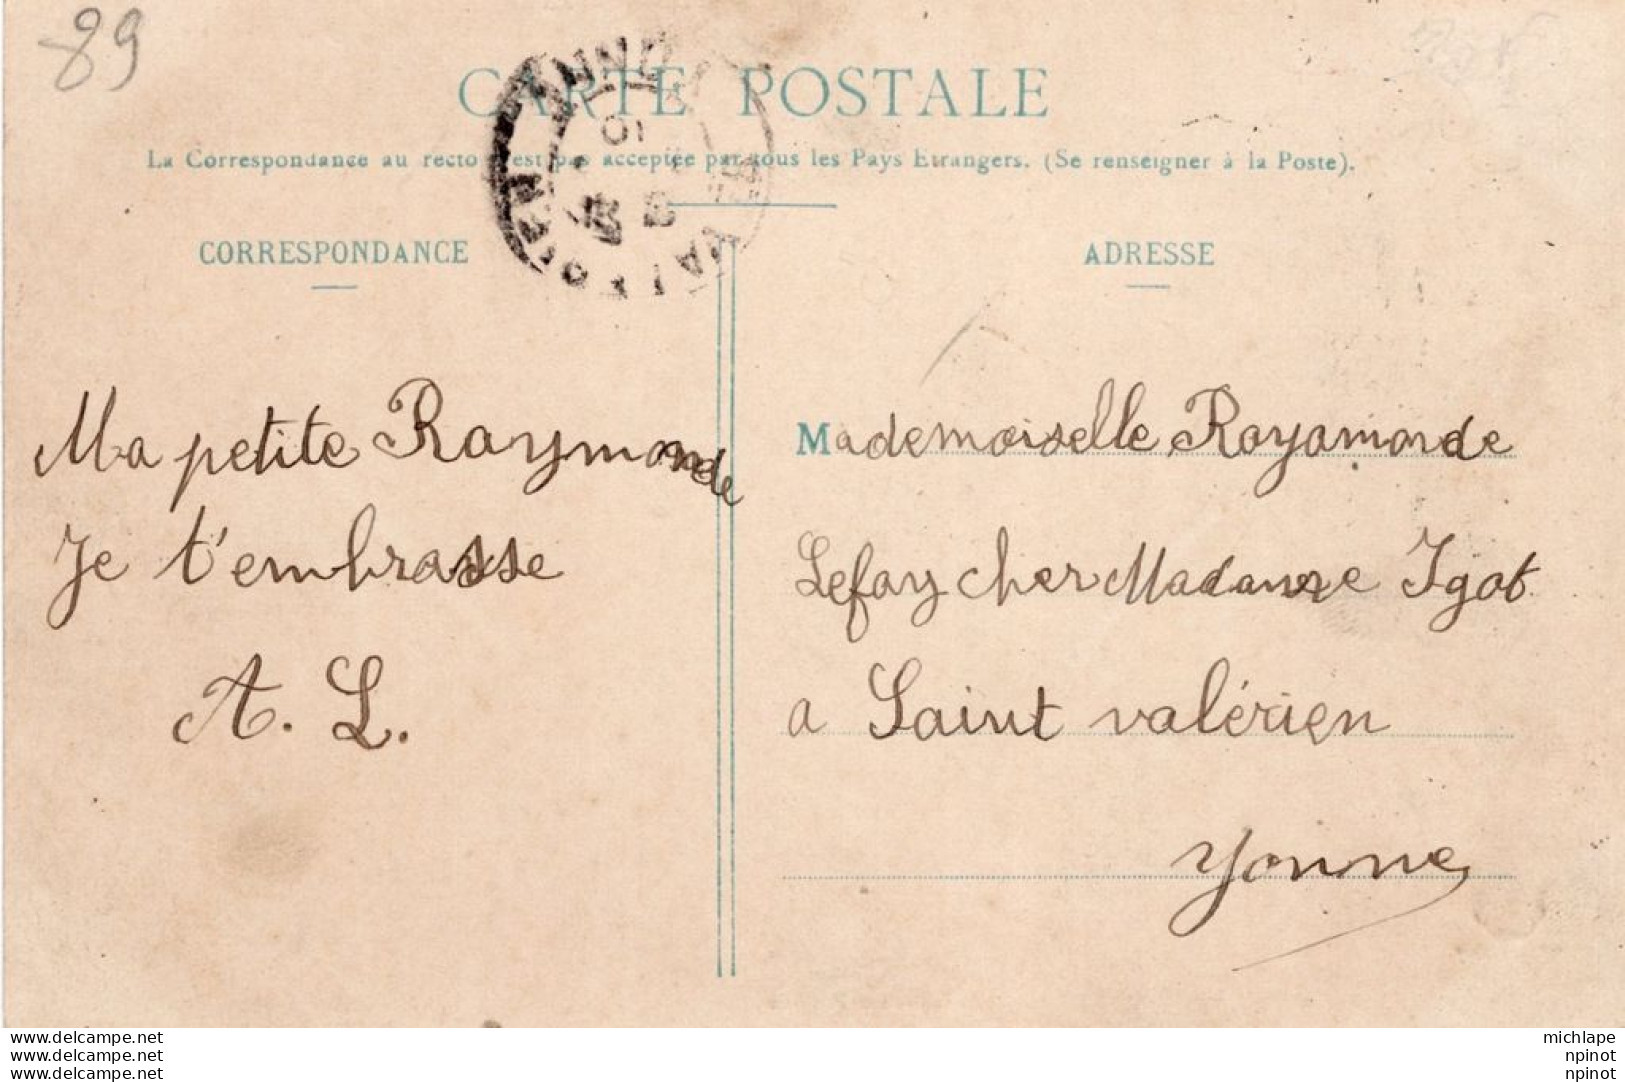 89
CARTE POSTALE
La Correspondance au recto n'est pas acceptée par tous les Pays Etrangers. (Se renseigner à la Poste).
CORRESPONDANCE
Ma petite Raymonde
Je t'embrasse
A. L.
ADRESSE
Mademoiselle Rayamonde
Lefay cher Madame Igot
a Saint valérien
Yonne
www.delcampe.net
www.delcampe.net
www.delcampe.net
michlape
npinot
npinot